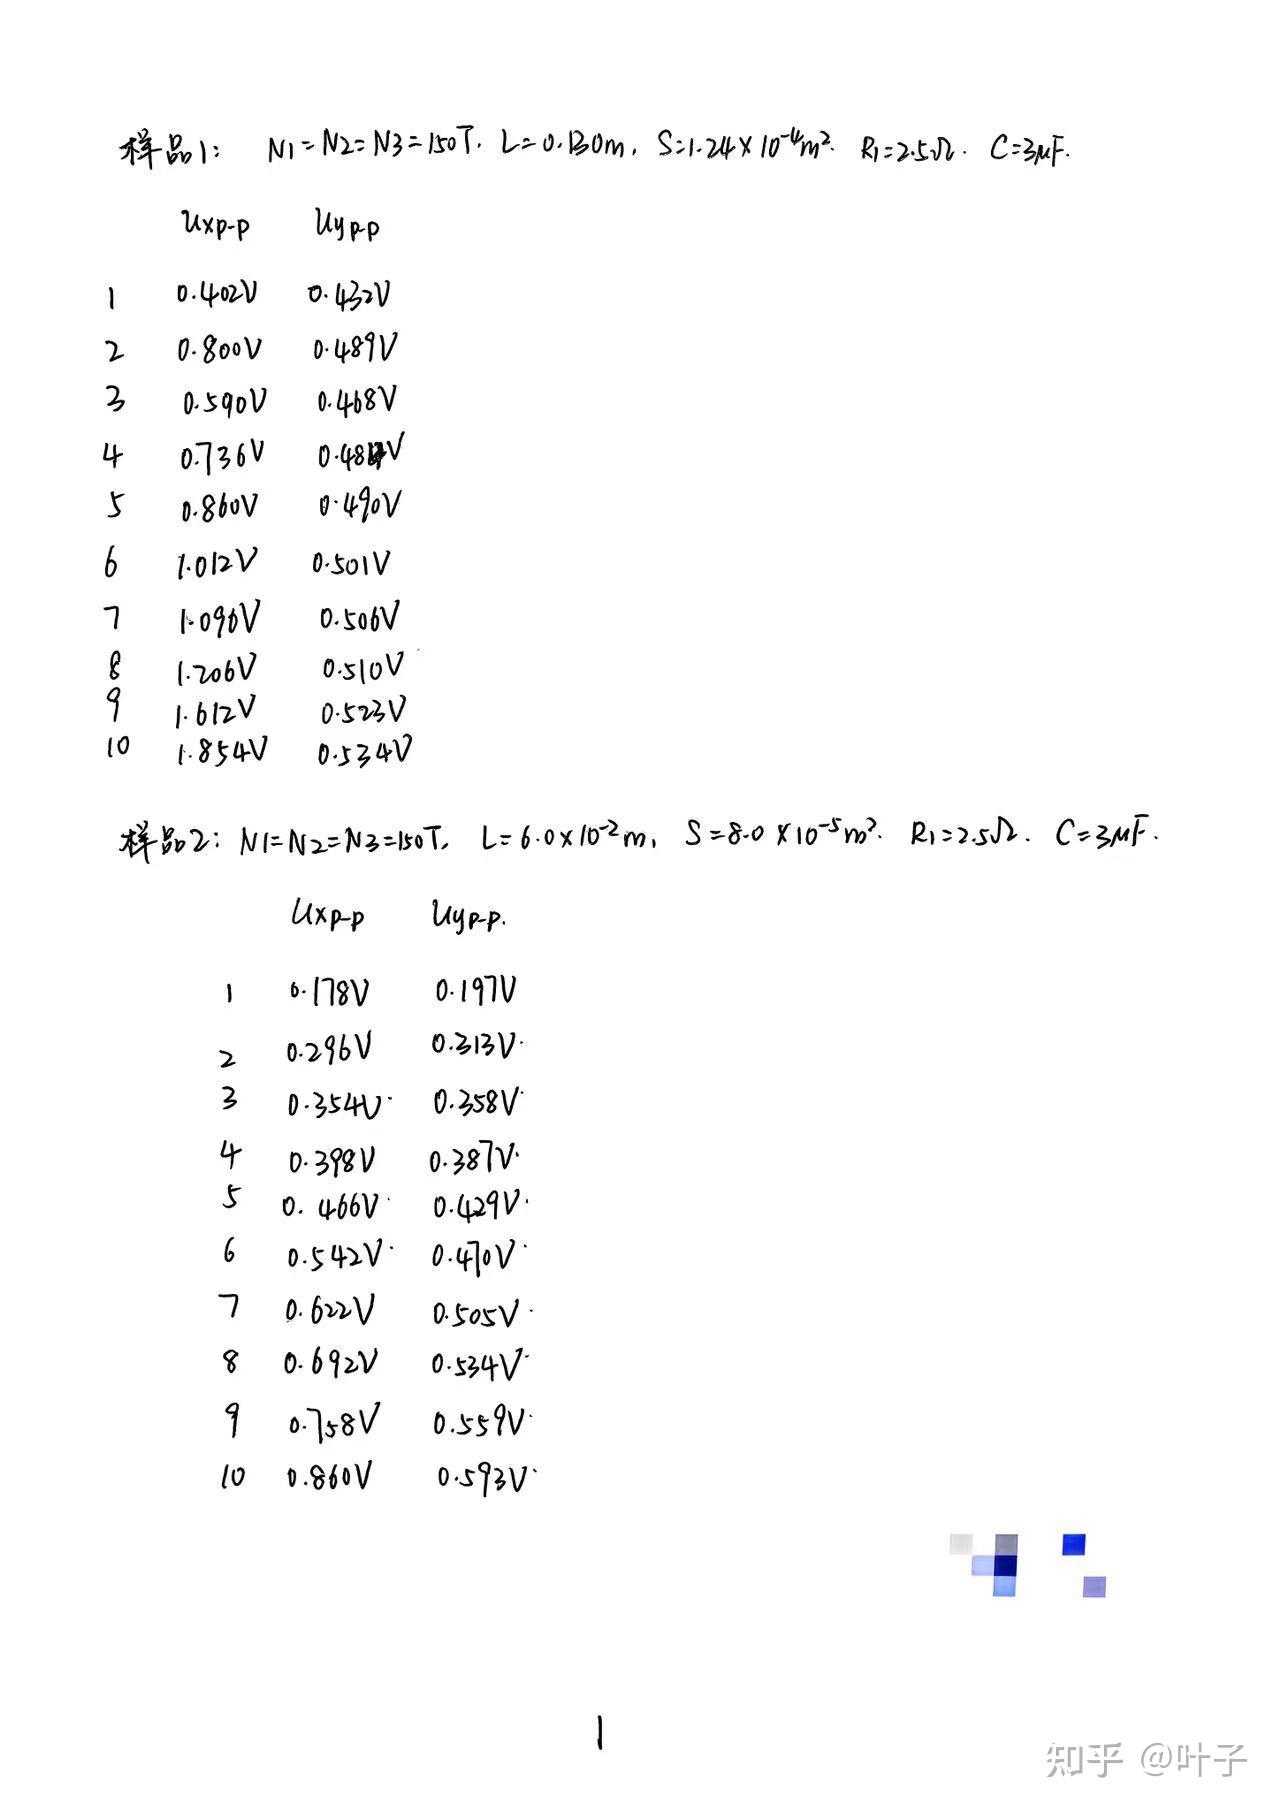 样品1: N1=N2=N3=150T. L=0.130m, S=1.24×10⁻⁴m². R1=2.5Ω. C=3μF.
Uxp-p Uyp-p
1 0.402V 0.432V
2 0.800V 0.489V
3 0.590V 0.468V
4 0.736V V
5 0.860V 0.490V
6 1.012V 0.501V
7 1.096V 0.506V
8 1.206V 0.510V
9 1.612V 0.523V
10 1.854V 0.534V
样品2: N1=N2=N3=150T, L=6.0×10⁻²m, S=8.0×10⁻⁵m². R1=2.5Ω. C=3μF.
Uxp-p Uyp-p.
1 0.178V 0.197V
2 0.296V 0.313V.
3 0.354V. 0.358V.
4 0.398V 0.387V.
5 0.466V. 0.429V.
6 0.542V. 0.470V.
7 0.622V 0.505V.
8 0.692V 0.534V.
9 0.758V 0.559V.
10 0.860V 0.593V.
1
知乎 @叶子